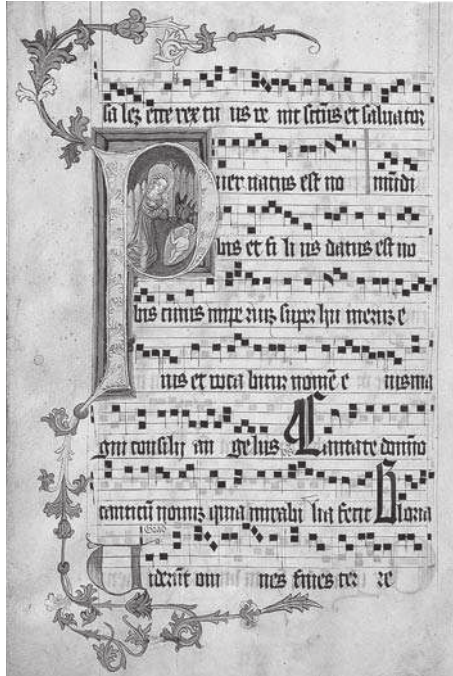 sa lez ecce rex tu us ve nit sctūs et saluator
Puer natus est no mūdi
bis et fi li us datus est no
bis cuius impe riuz super hu meruz e
ius et voca bitur nomē e iusma
gni consilij an gelus ps Cantate domīno
canticū nouuz quia mirabi lia fecit Gloria
Grad
Uiderūt om nes fines ter re